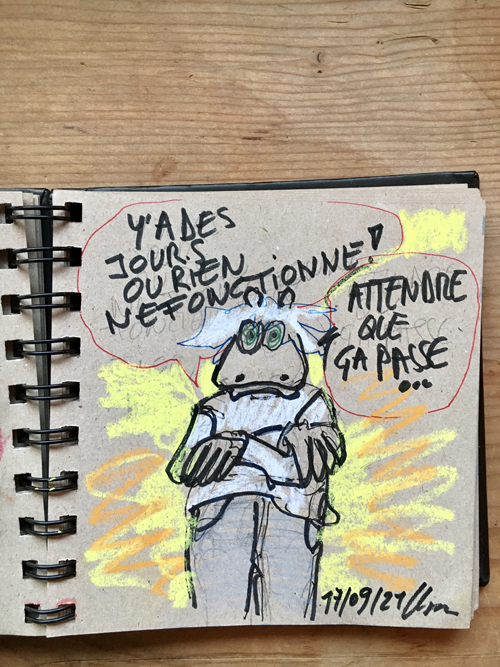 Y'A DES
JOURS
OU RIEN
NE FONCTIONNE!
ATTENDRE
QUE
ÇA PASSE
...
17/09/21